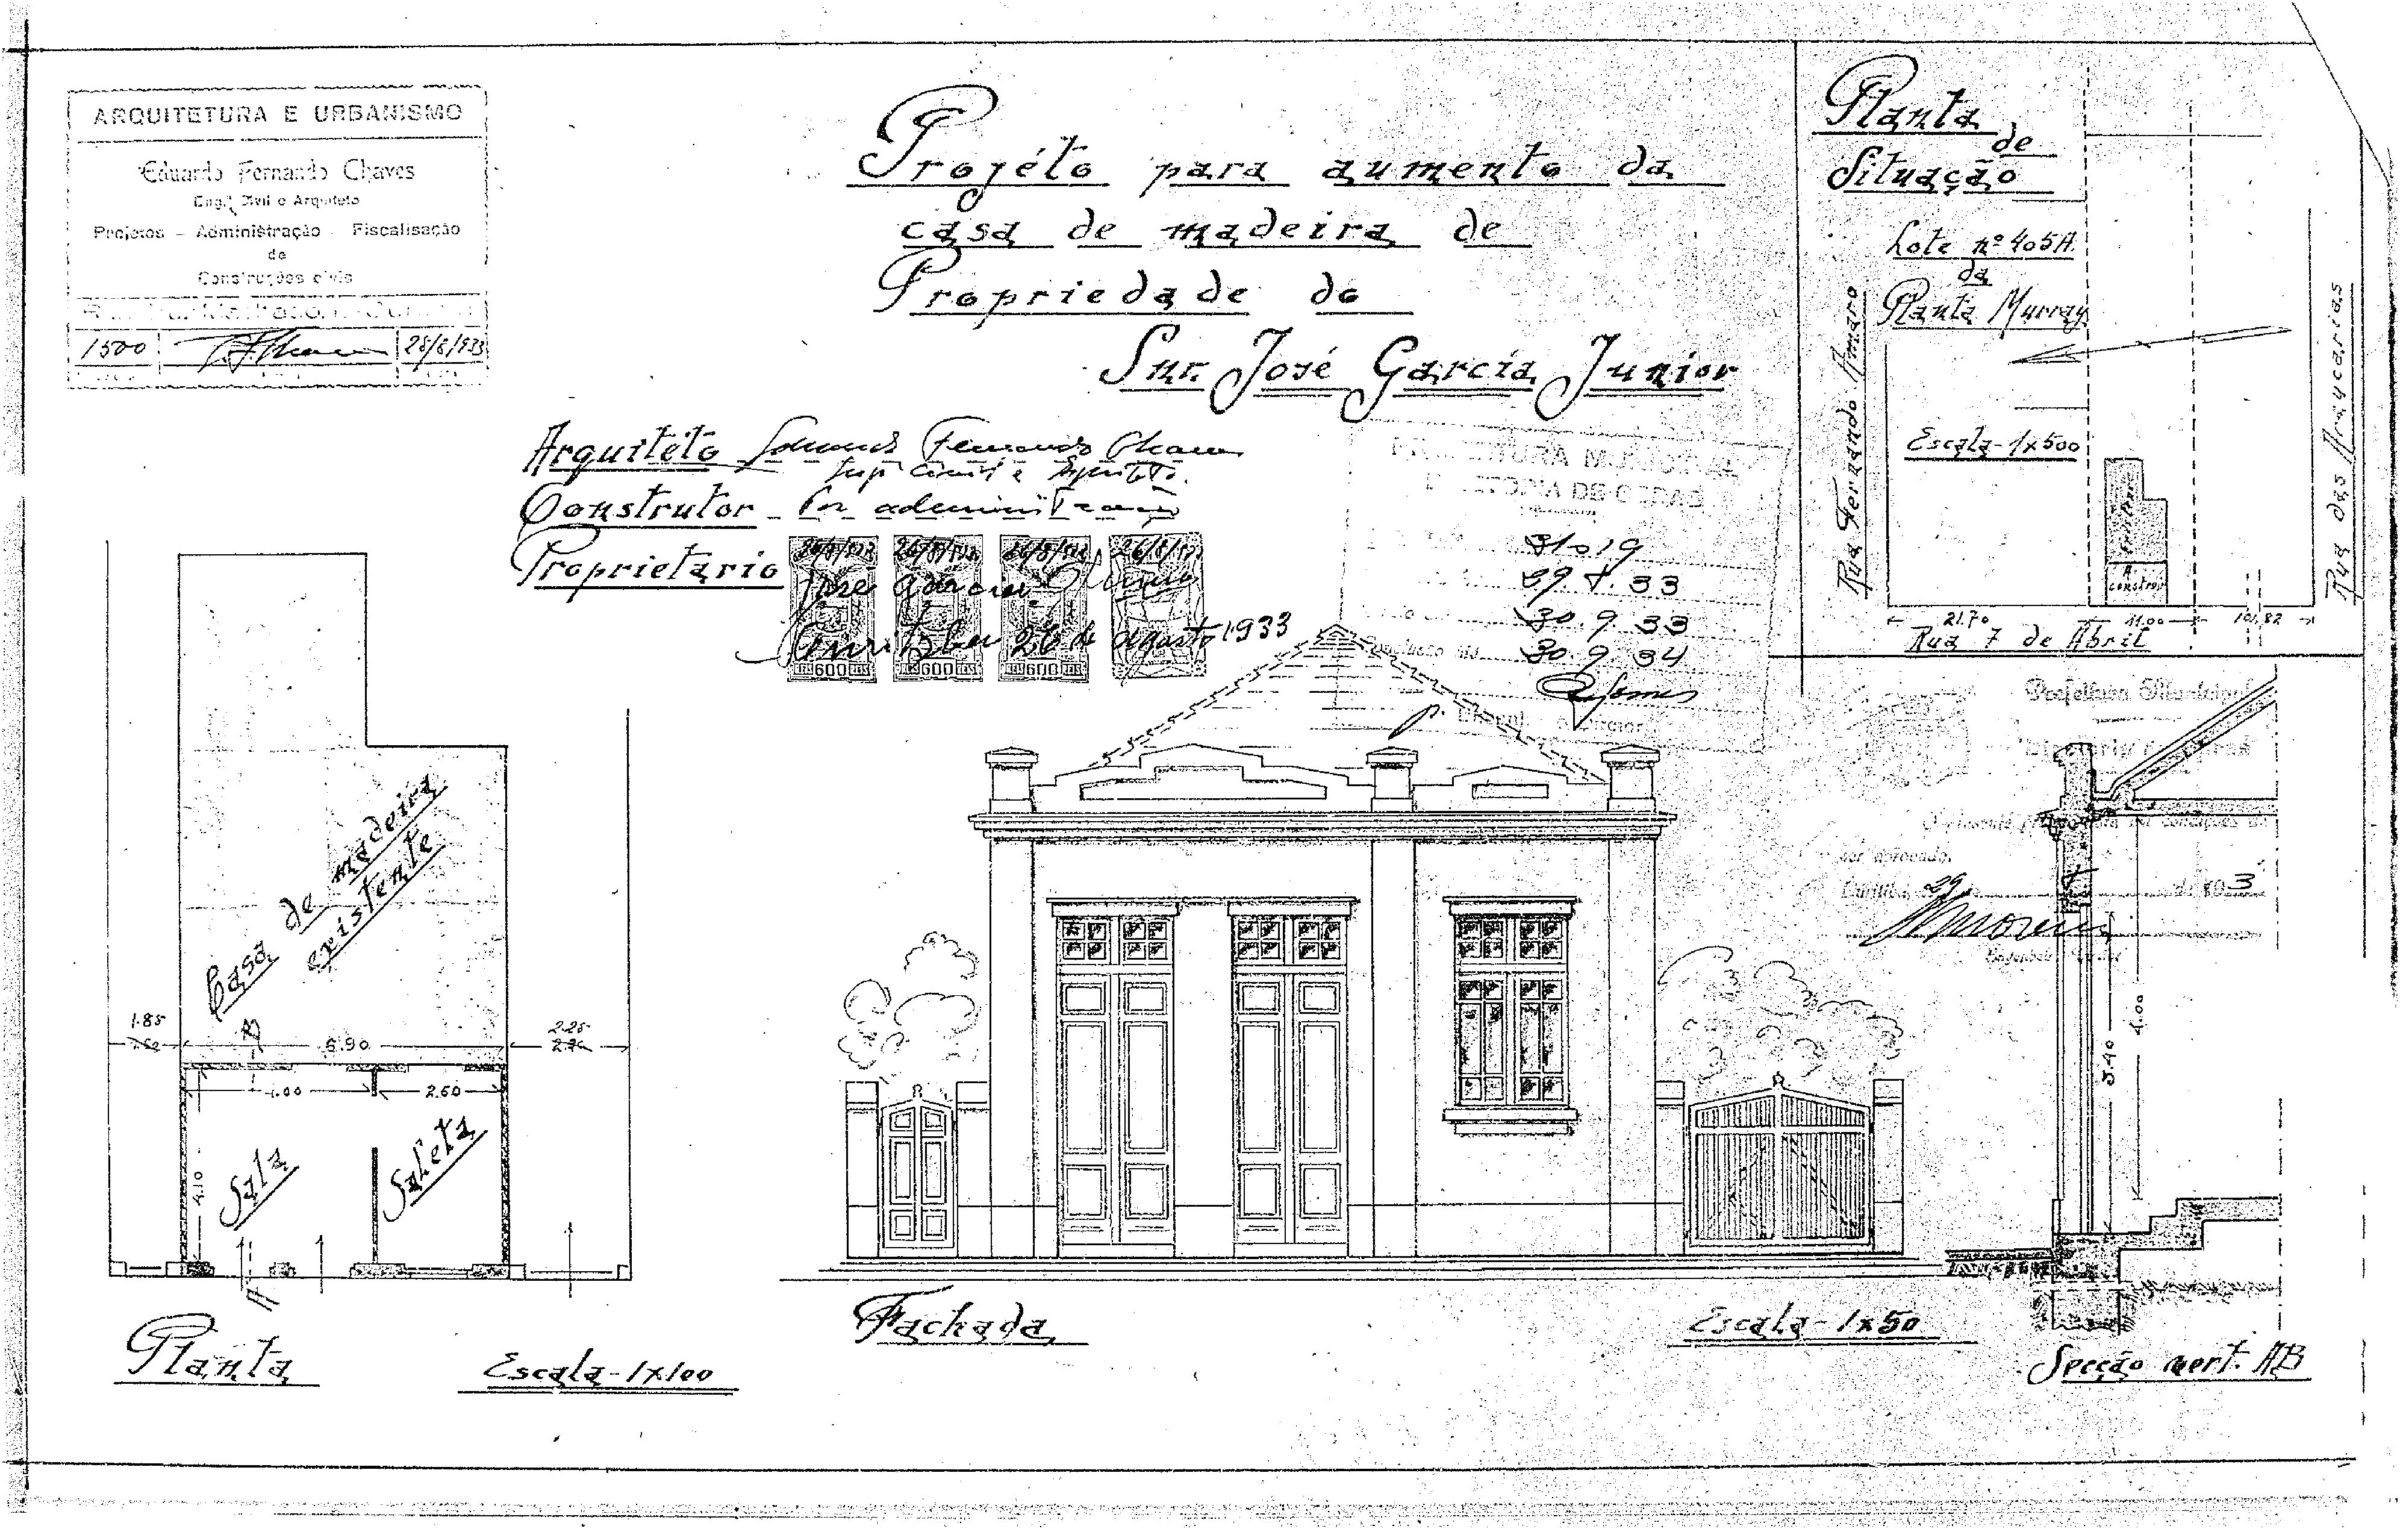 ARQUITETURA E URBANISMO
Eduardo Fernando Chaves
Eng. Civil e Arquiteto
Projetos - Administração - Fiscalisação
de
Construções civis
1500
28/8/933
Projéto para aumento da
casa de madeira de
Propriedade do
Snr. José Garcia Junior
Arquitéto Eduardo Fernando Chaves
Eng. Civil e Arquitéto.
Construtor - Por administração
Proprietario
26/8/933 26/8/933 26/8/933 26/8/933
José Garcia Junior
Curityba 26 de agosto 1933
600 600 600
PREFEITURA MUNICIPAL
DIRETORIA DE OBRAS
31019
29. 8. 33
30. 9. 33
30. 9. 34
Planta
de
Situação
Lote nº 405A.
da
Planta Murray
Escala - 1x500
Rua Fernando Amaro
Rua das Araucarias
A
construir
21.70 11.00 101.82
Rua 7 de Abril
Prefeitura Municipal
Diretoria de Obras
ser aprovado.
Curitiba, 29
Casa de madeira
existente
1.85
6.90
2.25
B
4.00 2.60
4.10
Sala
Saleta
A
Planta
Escala - 1x100
Fachada
Escala - 1x50
3.40
4.00
Secção vert. AB